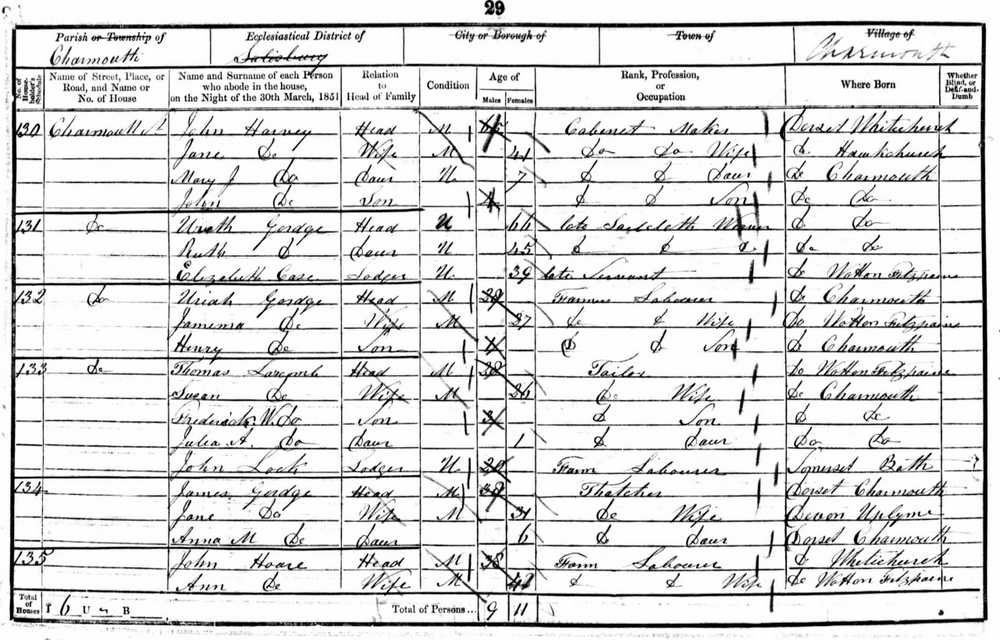 29
Parish or Township of Ecclesiastical District of City or Borough of Town of Village of
Charmouth Salisbury Charmouth
No. of House-holder's Schedule Name of Street, Place, or Road, and Name or No. of House Name and Surname of each Person who abode in the house, on the Night of the 30th March, 1851 Relation to Head of Family Condition Age of Males Females Rank, Profession, or Occupation Where Born Whether Blind, or Deaf-and-Dumb
130 Charmouth St John Harvey Head M Cabenet Maker Dorset Whitechurch
Jane Do Wife M 41 Do Do Wife Do Hawkchurch
Mary J Do Daur U 7 Do Do Daur Do Charmouth
John Do Son 4 Do Do Son Do Do
131 Do Gordge Head U 66 late Sailcloth Weaver Do Do
Ruth Do Daur U 45 Do Do Do Do Do
Elizabeth Case Lodger U 39 late Servant Do Wotton Fitzpaine
132 Do Uriah Gordge Head M 29 Farmers Labourer Do Charmouth
Jamema Do Wife M 27 Do Do Wife Do Wotton Fitzpaine
Henry Do Son Do Do Son Do Charmouth
133 Do Thomas Larcomb Head M 28 Tailor Do Wotton Fitzpaine
Susan Do Wife M 26 Do Wife Do Charmouth
Frederick W. Do Son 3 Do Son Do Do
Julia A. Do Daur 1 Do Daur Do Do
John Lock Lodger U 20 Farm Labourer Somerset Bath
134 James Gordge Head M 38 Thatcher Dorset Charmouth
Jane Do Wife M 31 Do Wife Devon Uplyme
Anna M Do Daur 6 Do Daur Dorset Charmouth
135 John Hoare Head M 38 Farm Labourer Do Whitichurch
Ann Do Wife M 42 Do Do Wife Do Wotton Fitzpaine
Total of Houses I 6 U B Total of Persons... 9 11